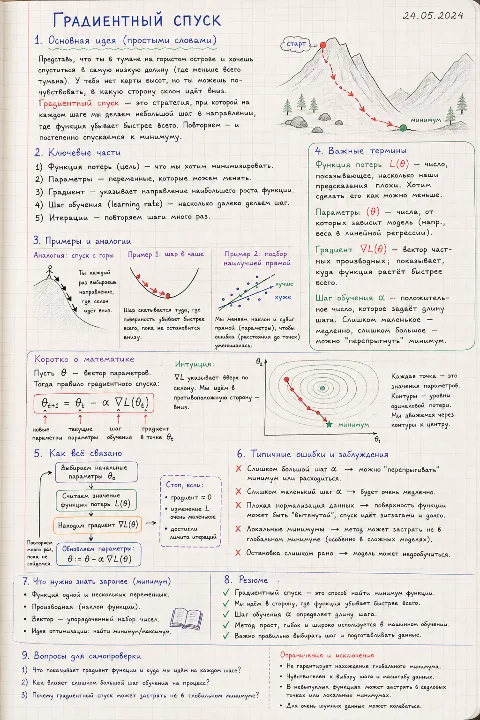 Градиентный спуск
24.05.2024
1. Основная идея (простыми словами)
Представь, что ты в тумане на гористом острове и хочешь
спуститься в самую низкую долину (где меньше всего
тумана). У тебя нет карты высот, но ты можешь по-
чувствовать, в какую сторону склон идёт вниз.
Градиентный спуск — это стратегия, при которой на
каждом шаге мы делаем небольшой шаг в направлении,
где функция убывает быстрее всего. Повторяем — и
постепенно спускаемся к минимуму.
старт
минимум
2. Ключевые части
1) Функция потерь (цель) — что мы хотим минимизировать.
2) Параметры — переменные, которые можем менять.
3) Градиент — указывает направление наибольшего роста функции.
4) Шаг обучения (learning rate) — насколько далеко делаем шаг.
5) Итерации — повторяем шаги много раз.
4. Важные термины
Функция потерь L(θ) — число,
показывающее, насколько наши
предсказания плохи. Хотим
сделать его как можно меньше.
Параметры (θ) — числа, от
которых зависит модель (напр.,
веса в линейной регрессии).
Градиент ∇L(θ) — вектор част-
ных производных; показывает,
куда функция растёт быстрее
всего.
Шаг обучения α — положитель-
ное число, которое задаёт длину
шага. Слишком маленькое —
медленно, слишком большое —
можно "перепрыгнуть" минимум.
3. Примеры и аналогии
Аналогия: спуск с горы
Ты каждый
раз выбираешь
направление,
где склон
идёт вниз.
Пример 1: шар в чаше
Шар скатывается туда, где
поверхность убывает быстрее
всего, пока не остановится
внизу.
Пример 2: подбор
наилучшей прямой
лучше
хуже
Мы меняем наклон и сдвиг
прямой (параметры), чтобы
ошибка (расстояния до точек)
уменьшалась.
Коротко о математике
Пусть θ — вектор параметров.
Тогда правило градиентного спуска:
θt+1 = θt − α ∇L(θt)
новые текущие шаг градиент
параметры параметры обучения в точке θt
Интуиция:
∇L указывает вверх по
склону. Мы идём в
противоположную сторону —
вниз.
θ₂
минимум
θ₁
Каждая точка — это
значения параметров.
Контуры — уровни
одинаковой потери.
Мы движемся через
контуры к центру.
5. Как всё связано
Выбираем начальные
параметры θ₀
Считаем значение
функции потерь L(θ)
Находим градиент ∇L(θ)
Обновляем параметры:
θ := θ − α ∇L(θ)
Повторяем
много раз,
пока не
сойдёмся.
Стоп, если:
• градиент ≈ 0
• изменение L
очень маленькое
• достигли
лимита итераций
6. Типичные ошибки и заблуждения
✗ Слишком большой шаг α → можно "перепрыгивать"
минимум или расходиться.
✗ Слишком маленький шаг α → будет очень медленно.
✗ Плохая нормализация данных → поверхность функции
может быть "вытянутой", спуск идёт зигзагами и долго.
✗ Локальные минимумы → метод может застрять не в
глобальном минимуме (особенно в сложных моделях).
✗ Остановка слишком рано → модель может недообучиться.
7. Что нужно знать заранее (минимум)
• Функция одной и нескольких переменных.
• Производная (наклон функции).
• Вектор — упорядоченный набор чисел.
• Идея оптимизации: найти минимум/максимум.
8. Резюме
✓ Градиентный спуск — это способ найти минимум функции.
✓ Мы идём в сторону, где функция убывает быстрее всего.
✓ Шаг обучения α определяет длину шага.
✓ Метод прост, гибок и широко используется в машинном обучении.
✓ Важно правильно выбирать шаг и подготавливать данные.
9. Вопросы для самопроверки
1) Что показывает градиент функции и куда мы идём на каждом шаге?
2) Как влияет слишком большой шаг обучения на процесс?
3) Почему градиентный спуск может застрять не в глобальном минимуме?
Ограничения и исключения
• Не гарантирует нахождения глобального минимума.
• Чувствителен к выбору шага и масштабу данных.
• В невыпуклых функциях может застрять в седловых
точках или локальных минимумах.
• Для очень шумных данных может колебаться.